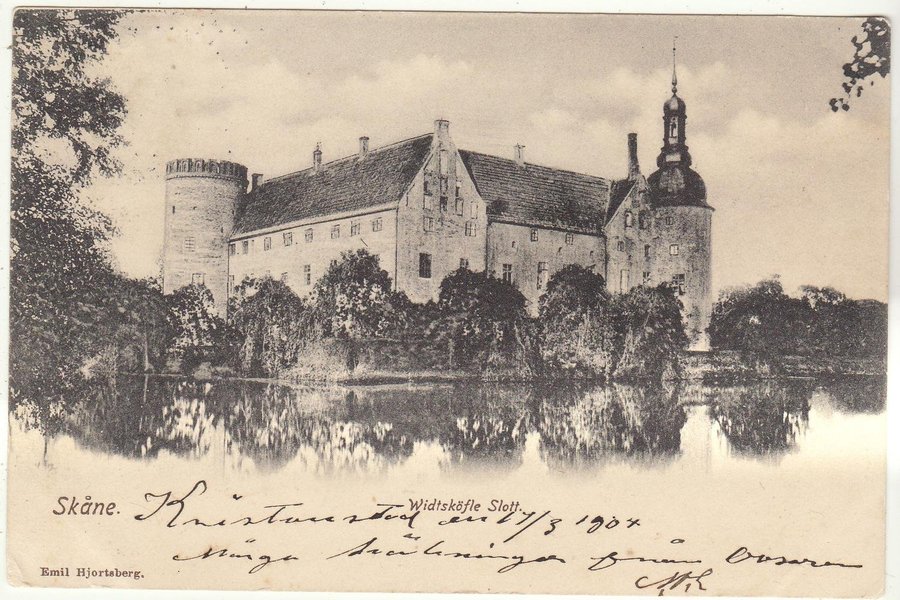 Skåne.
Widtsköfle Slott.
Kristianstad den 17/3 1904
Många hälsningar från
Emil Hjortsberg.